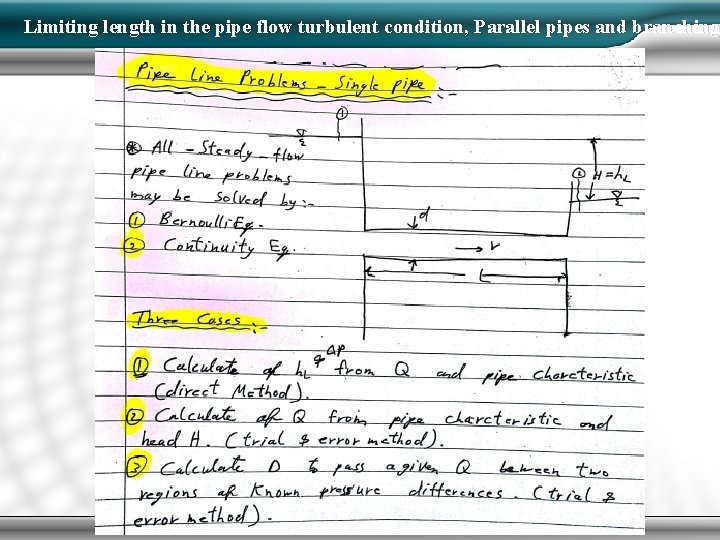 Limiting length in the pipe flow turbulent condition, Parallel pipes and branching
Pipe Line Problems - Single pipe :-
①
* All - Steady - flow
pipe line problems
may be solved by:-
① Bernoulli Eq.
② Continuity Eq.
② H=hL
d
V
L
Three Cases:-
① Calculate of hL & ΔP from Q and pipe charcteristic
(direct Method).
② Calculate of Q from pipe charcteristic and
head H. (trial & error method).
③ Calculate D to pass a given Q between two
regions of known pressure differences. (trial &
error method).